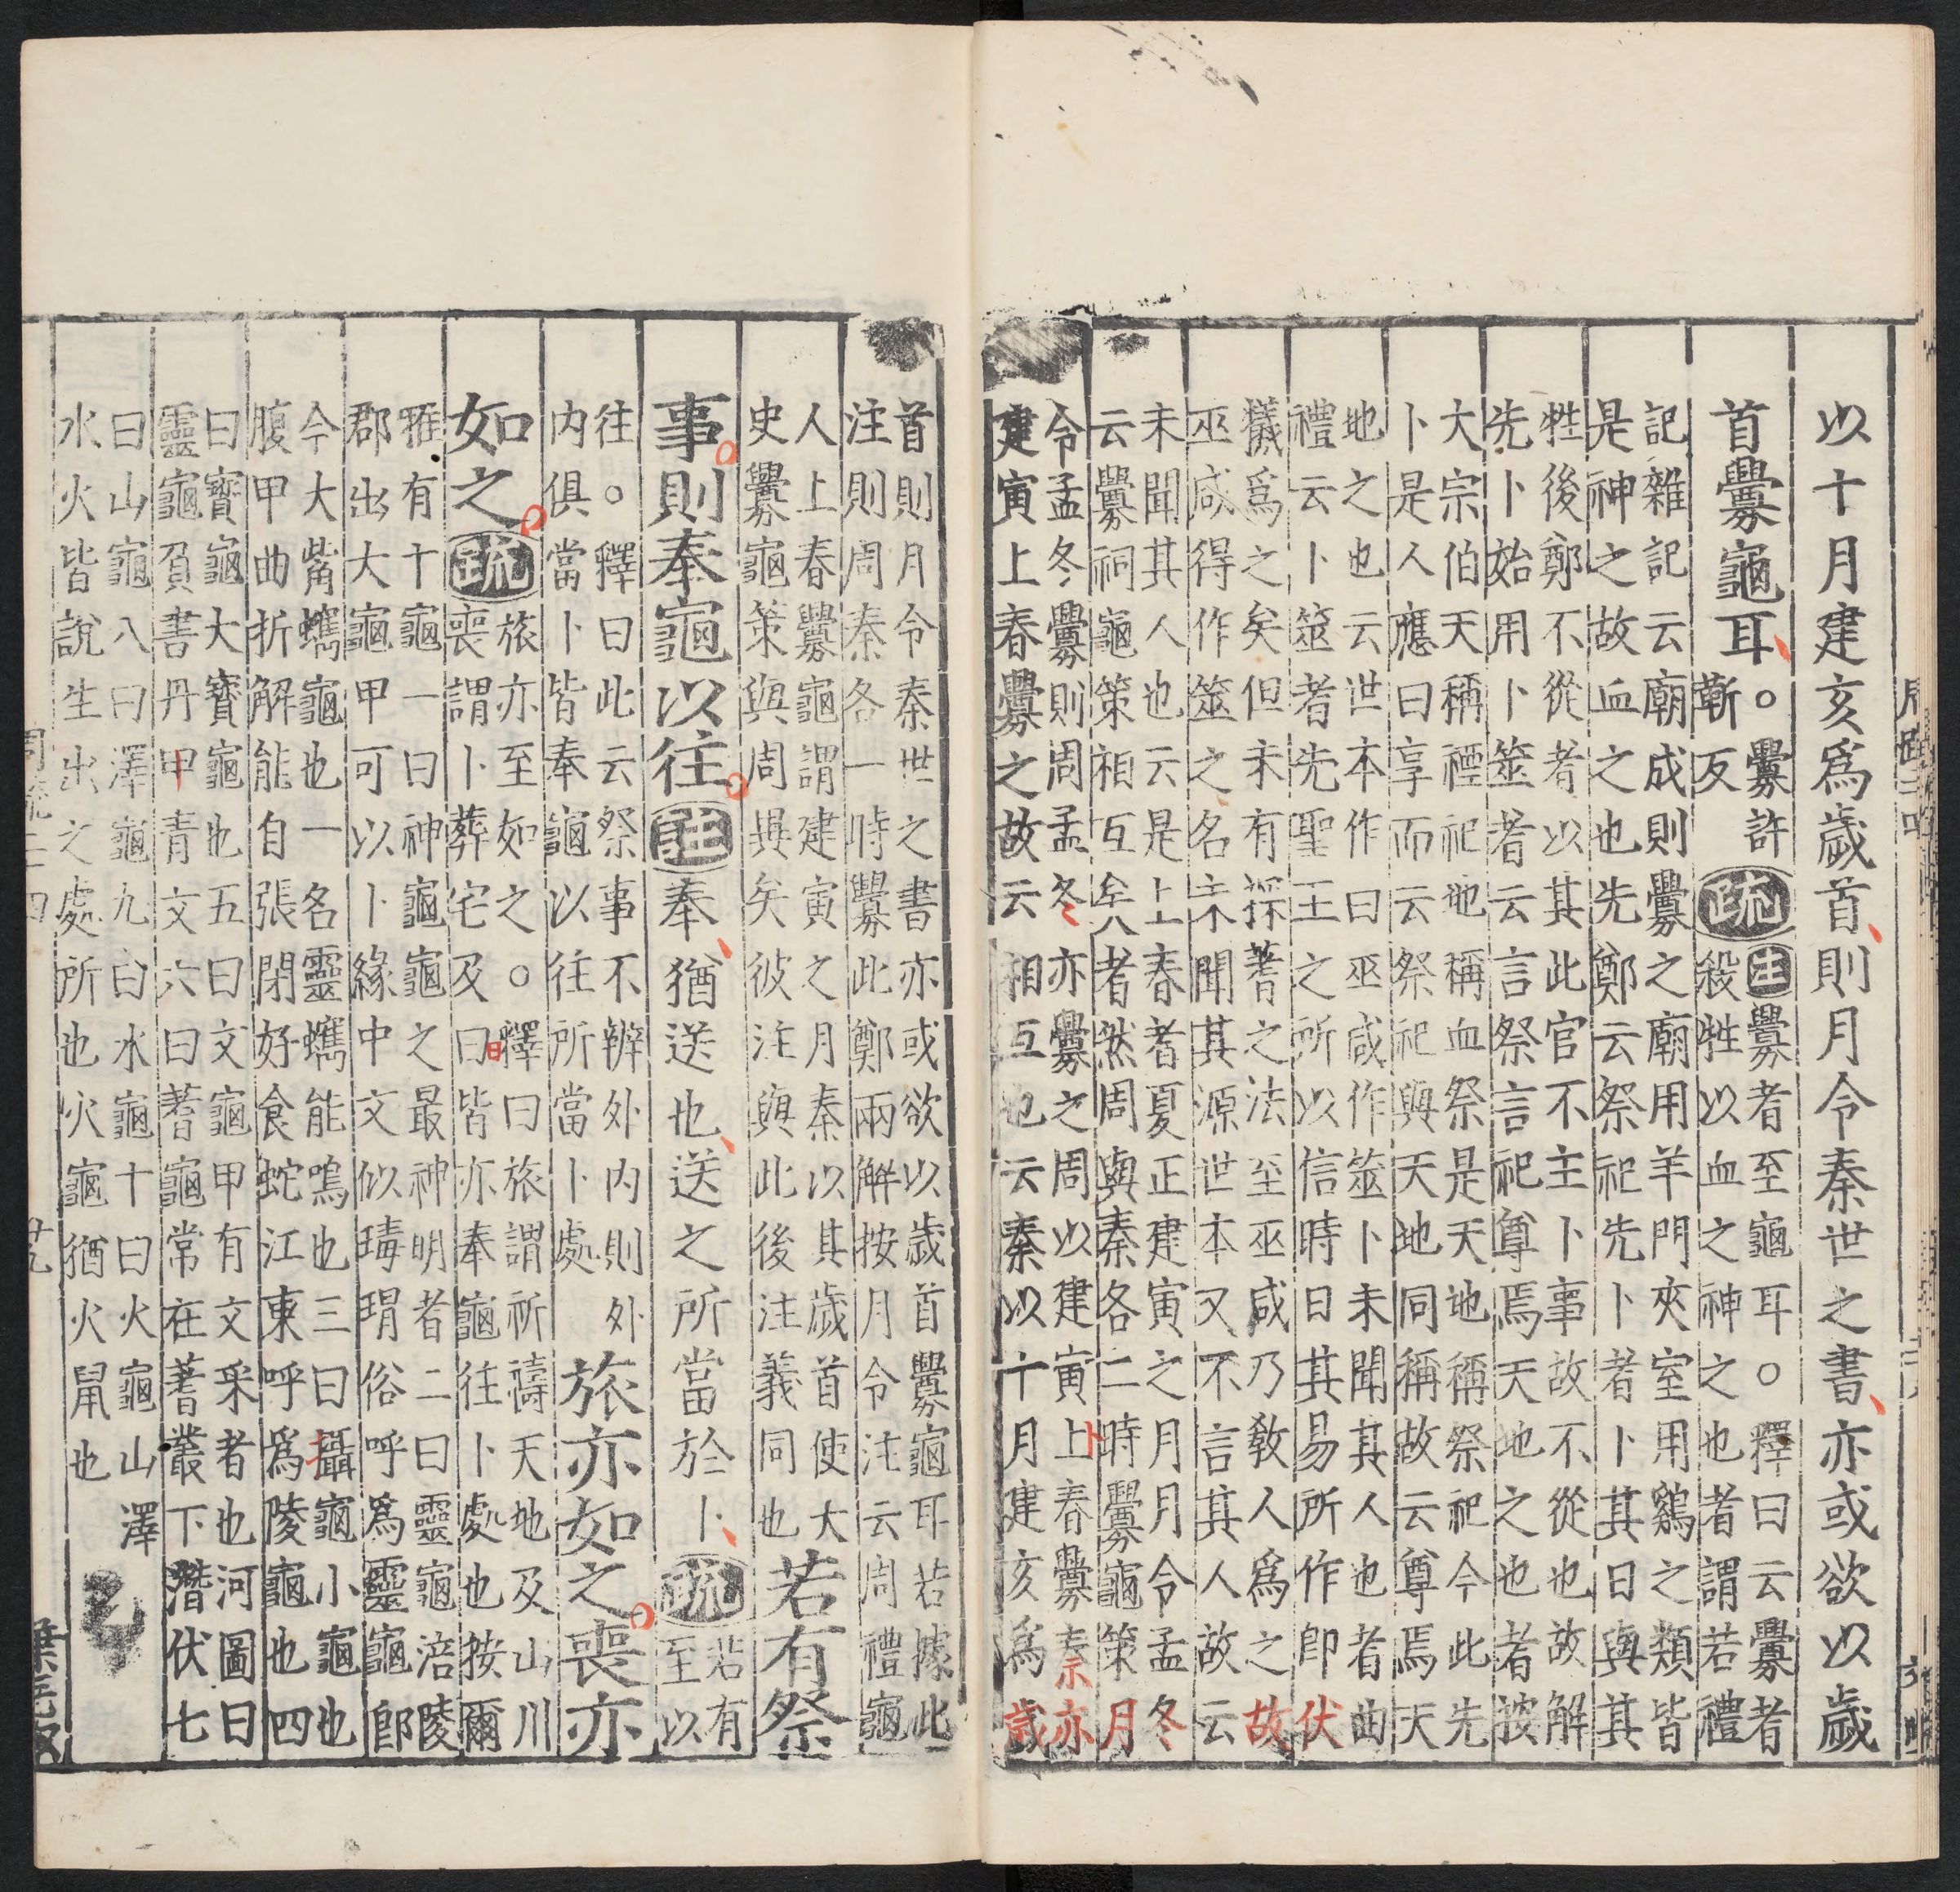 以十月建亥爲歲首則月令秦世之書亦或欲以歲
首釁龜耳
○釁許
靳反
疏
注釁者至龜耳○釋曰云釁者
殺牲以血之神之也者謂若禮
記雜記云廟成則釁之廟用羊門夾室用鷄之類皆
是神之故血之也先鄭云祭祀先卜者卜其日與其
牲後鄭不從者以其此官不主卜事故不從也故解
先卜始用卜筮者云言祭言祀尊焉天地之也者按
大宗伯天稱禋祀地稱血祭是天地稱祭祀今此先
卜是人應曰享而云祭祀與天地同稱故云尊焉天
地之也云世本作曰巫咸作筮卜未聞其人也者曲
禮云卜筮者先聖王之所以信時日其易所作卽伏
犧爲之矣但未有揲蓍之法至巫咸乃敎人爲之故
巫咸得作筮之名未聞其源世本又不言其人故云
未聞其人也云是上春者夏正建寅之月月令孟冬
云釁祠龜策相互矣者然周與秦各二時釁龜策月
令孟冬釁則周孟冬亦釁之周以建寅上春釁秦亦
建寅上春釁之故云相互也云秦以十月建亥爲歲
首則月令秦世之書亦或欲以歲首釁龜耳若據此
注則周秦各一時釁此鄭兩解按月令注云周禮龜
人上春釁龜謂建寅之月秦以其歲首使大
史釁龜策與周異矣彼注與此後注義同也
若有祭
事則奉龜以往注奉猶送也送之所當於卜疏
若有
至以
往○釋曰此云祭事不辨外内則外
内俱當卜皆奉龜以往所當卜處
旅亦如之喪亦
如之疏
旅亦至如之○釋曰旅謂祈禱天地及山川
喪謂卜葬宅及日皆亦奉龜往卜處也按爾
雅有十龜一曰神龜龜之最神明者二曰靈龜涪陵
郡出大龜甲可以卜緣中文似瑇瑁俗呼爲靈龜卽
今大觜蠵龜也一名靈蠵能鳴也三曰攝龜小龜也
腹甲曲折解能自張閉好食蛇江東呼爲陵龜也四
曰寶龜大寶龜也五曰文龜甲有文采者也河圖曰
靈龜負書丹甲青文六曰蓍龜常在蓍叢下潛伏七
曰山龜八曰澤龜九曰水龜十曰火龜山澤
水火皆說生出之處所也火龜猶火鼠也